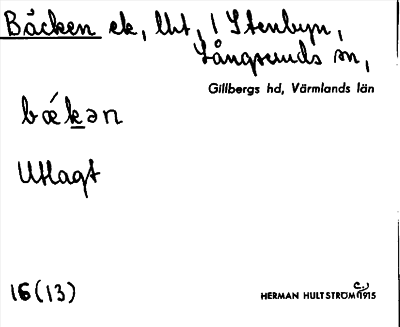 Bäcken ek, lht, i Stenbyn,
Långseruds sn,
Gillbergs hd, Värmlands län
bǽkən
Utlagt
16(13)
HERMAN HULTSTRÖM c. 1915